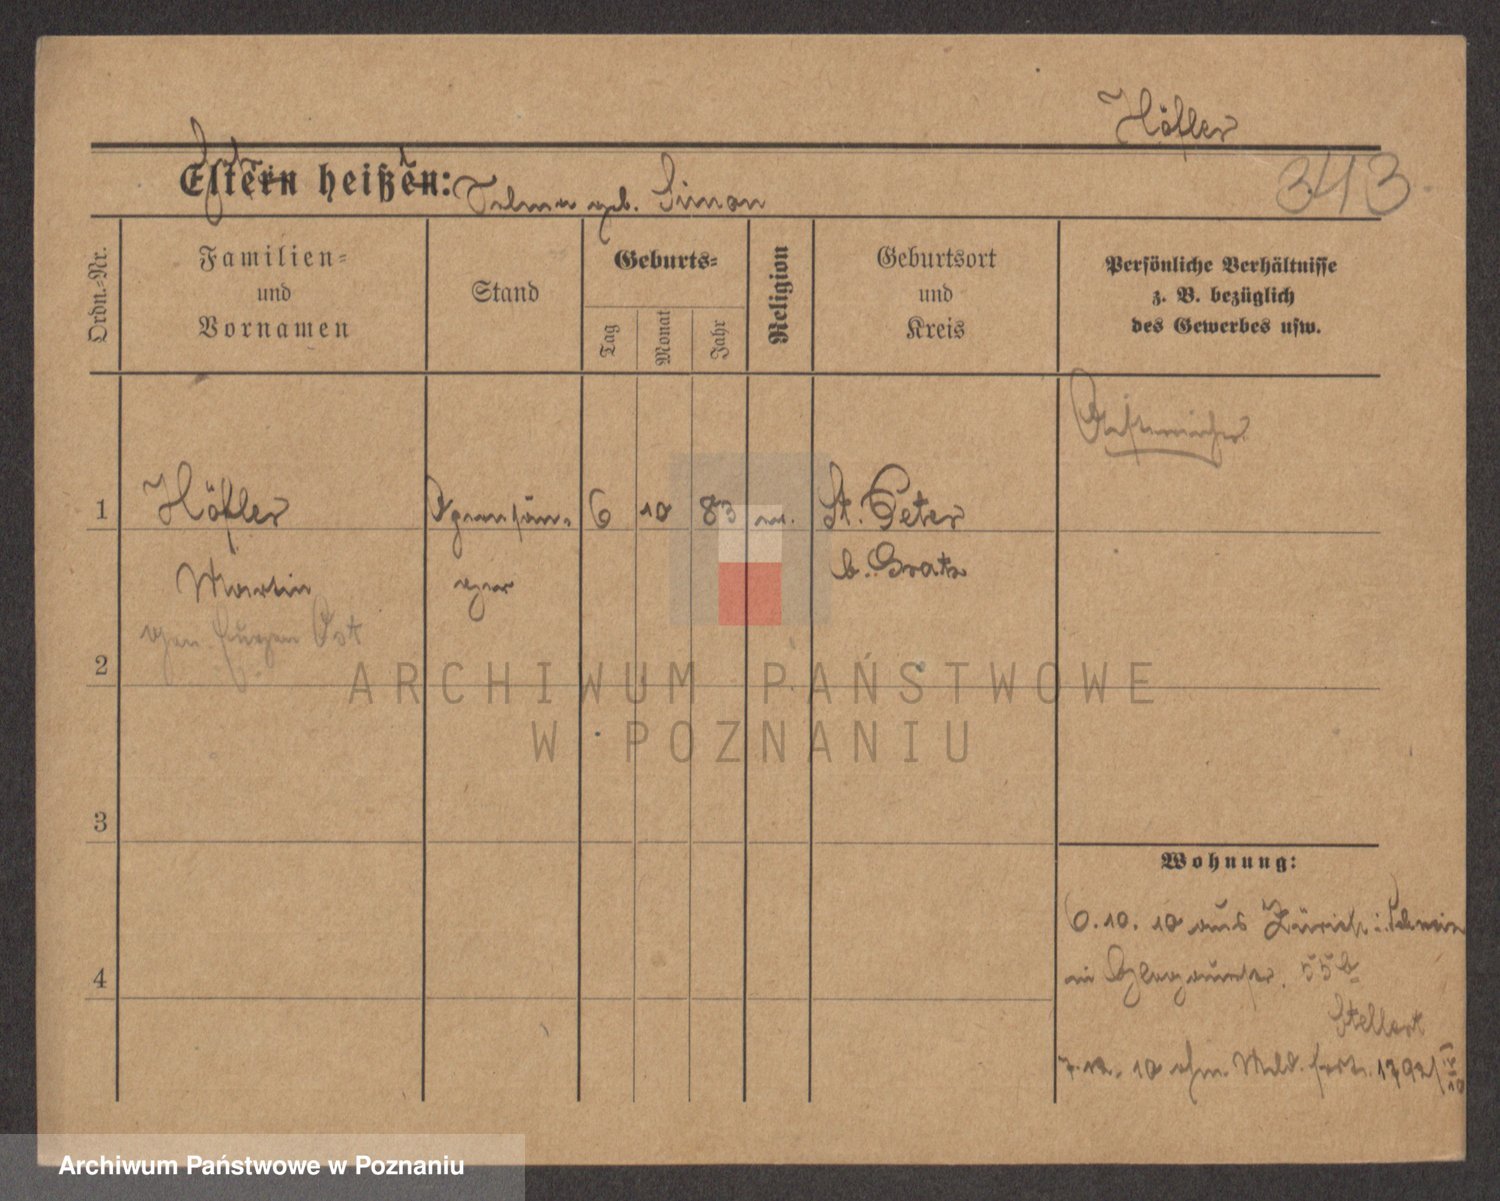 Höfler
343
Eltern heißen: Selma geb. Simon
Ordn.-Nr.
Familien-
und
Vornamen
Stand
Geburts-
Tag
Monat
Jahr
Religion
Geburtsort
und
Kreis
Persönliche Verhältnisse
z. B. bezüglich
des Gewerbes usw.
1 Höfler Opernsän- 6 10 83 St. Peter
Martin ger b. Gratz
gen. Ost
2
3
4
Wohnung:
6.10.10 aus Zürich i. Schweiz
55
Stellert
10 1792
ARCHIWUM PAŃSTWOWE
W POZNANIU
Archiwum Państwowe w Poznaniu